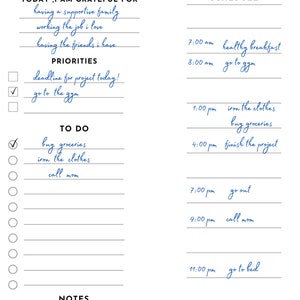 TODAY, I AM GRATEFUL FOR
having a supportive family
working the job i love
having the friends i have
PRIORITIES
deadline for project today!
go to the gym
TO DO
buy groceries
iron the clothes
call mom
NOTES
SCHEDULE
7:00 am healthy breakfast
8:00 am go to gym
1:00 pm iron the clothes
buy groceries
4:00 pm finish the project
7:00 pm go out
9:00 pm call mom
11:00 pm go to bed